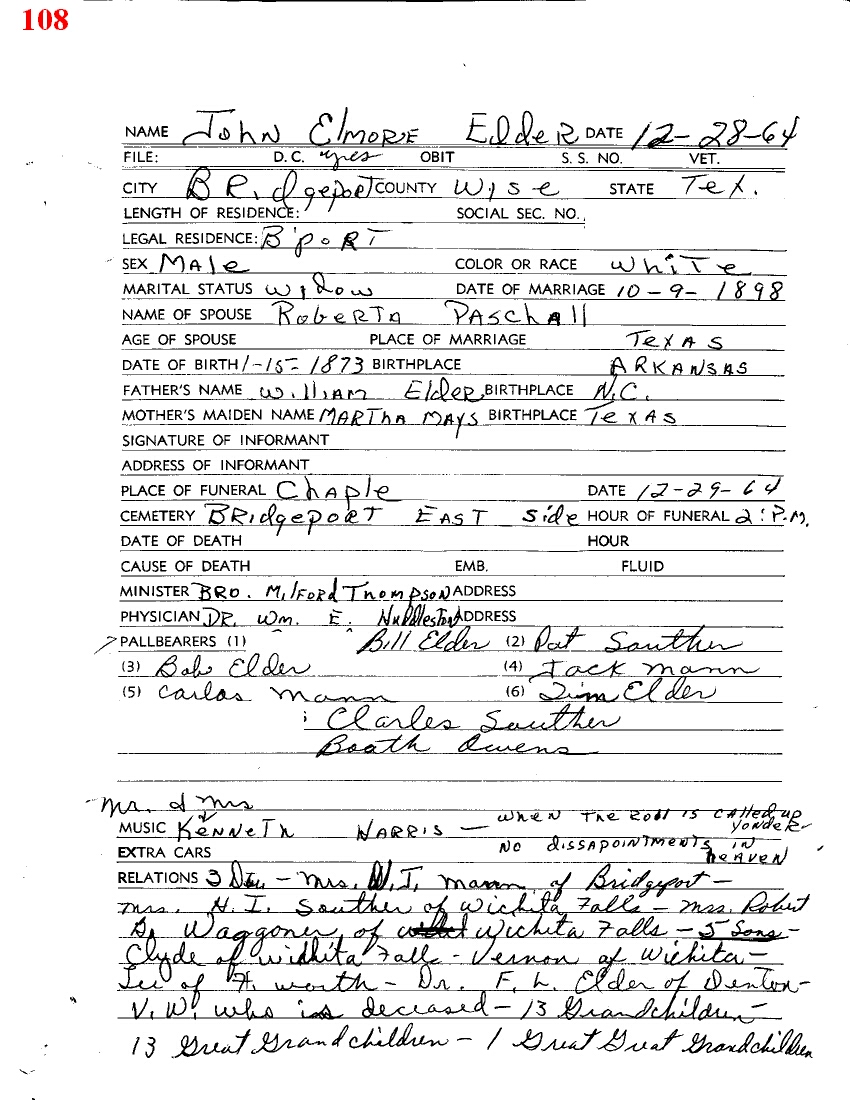 108
NAME John Elmore Elder DATE 12-28-64
FILE: D.C. yes OBIT S. S. NO. VET.
CITY BRidgeport COUNTY Wise STATE Tex.
LENGTH OF RESIDENCE: SOCIAL SEC. NO.
LEGAL RESIDENCE: B'PORT
SEX Male COLOR OR RACE White
MARITAL STATUS widow DATE OF MARRIAGE 10-9-1898
NAME OF SPOUSE Roberta Paschall
AGE OF SPOUSE PLACE OF MARRIAGE Texas
DATE OF BIRTH 1-15-1873 BIRTHPLACE ARKANSAS
FATHER'S NAME William Elder BIRTHPLACE N.C.
MOTHER'S MAIDEN NAME MARTha MAYS BIRTHPLACE Texas
SIGNATURE OF INFORMANT
ADDRESS OF INFORMANT
PLACE OF FUNERAL Chaple DATE 12-29-64
CEMETERY BRidgepoRT EAST Side HOUR OF FUNERAL 2:P.M.
DATE OF DEATH HOUR
CAUSE OF DEATH EMB. FLUID
MINISTER BRO. Milford Thompson ADDRESS
PHYSICIAN DR. Wm. E. Huddleston ADDRESS
PALLBEARERS (1) Bill Elder (2) Pat Souther
(3) Bob Elder (4) Jack Mann
(5) Carlos Mann (6) Jim Elder
Clarles Souther
Booth Owens
Mr. & Mrs
MUSIC Kenneth HARRIS — When The Roll is called up yonder
EXTRA CARS No dissapointments in heaven
RELATIONS 3 Du. - Mrs. W.T. Mann of Bridgeport -
Mrs. H. I. Souther of Wichita Falls - Mrs. Robert
G. Waggoner of Wichita Falls - 5 Sons -
Clyde of Widhita Falls - Vernon of Wichita -
Lee of Ft. Worth - Dr. F. L. Elder of Denton -
V. W. who is deceased - 13 Grandchildren -
13 Great Grandchildren - 1 Great Great Grandchildren